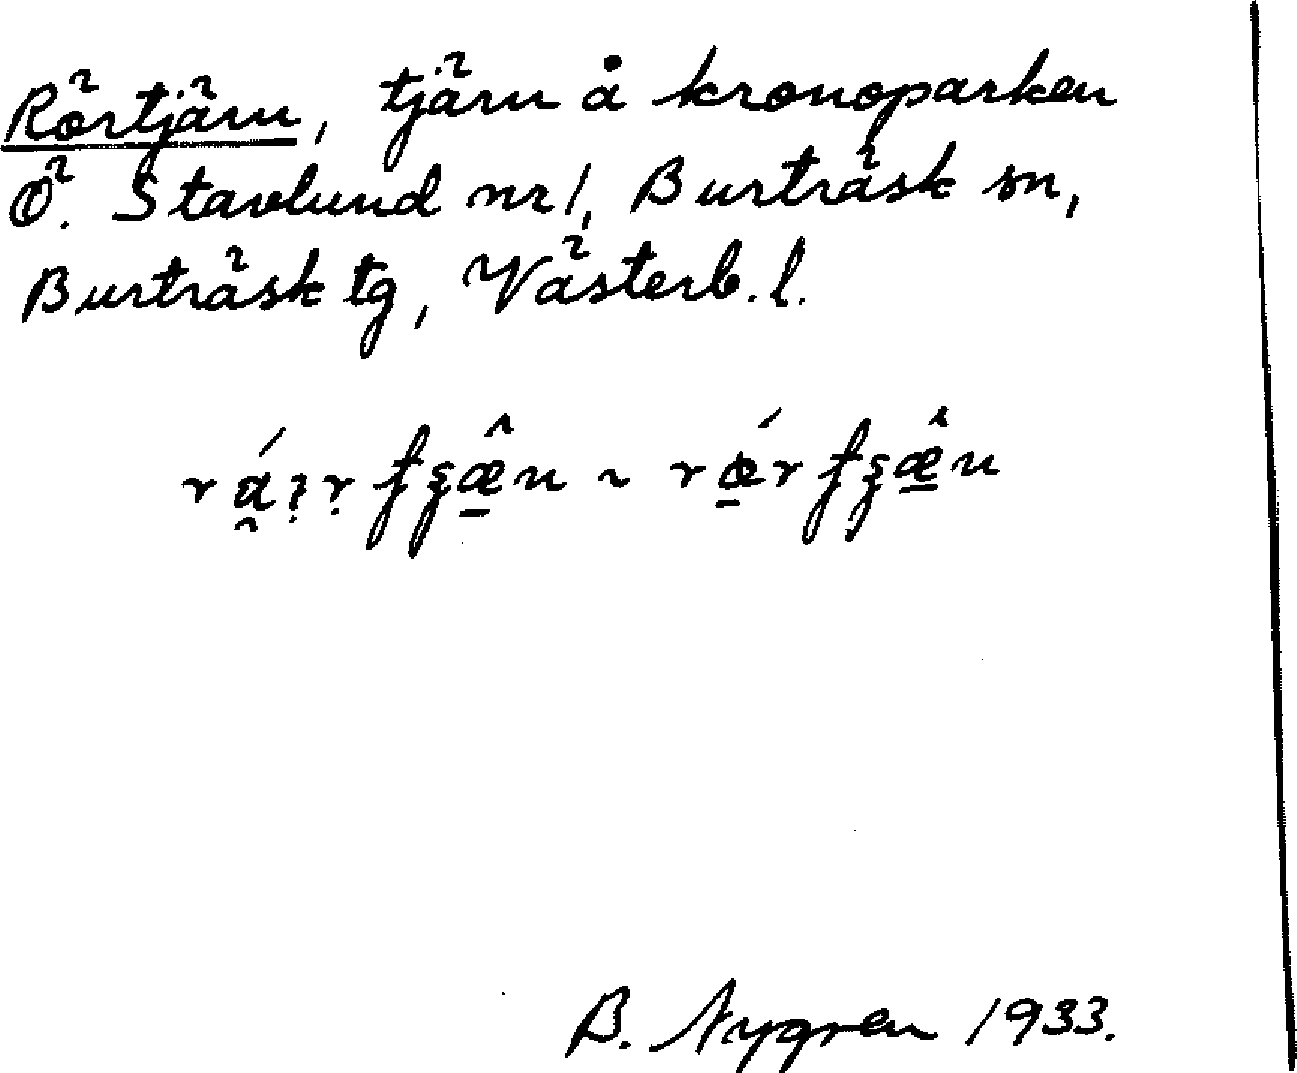 Rörtjärn, tjärn å kronoparken
Ö. Stavlund nr 1, Burträsk sn,
Burträsk tg, Västerb. l.
B. Nygren 1933.